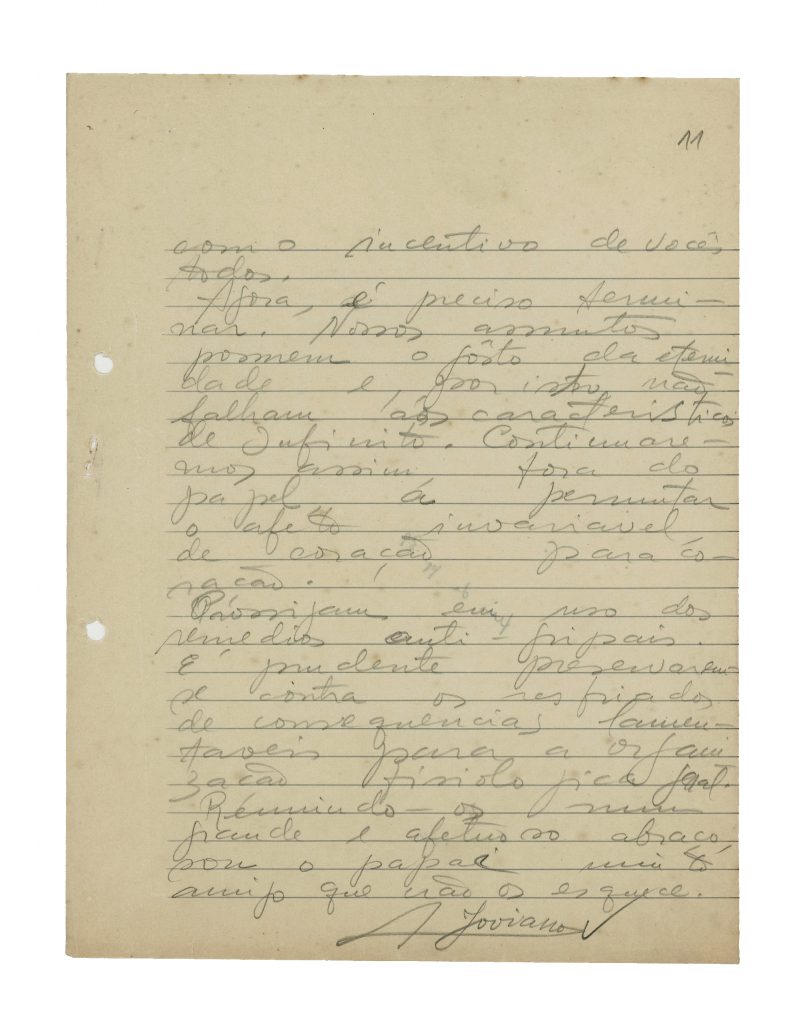 11
com o incentivo de vocês
todos.
Agora, é preciso termi-
nar. Nossos assuntos
possuem o gôsto da eterni-
dade e, por isto, não
falham aos caracteristicos
de Infinito. Continuare-
mos assim fora do
papel á permutar
o afeto invariavel
de coração para co-
ração.
Prossijam em uso dos
remedios anti-gripais.
É prudente preservarem-
se contra os resfriados
de consequencias lamen-
taveis para a organi
zação fisiologica geral.
Reunindo-os num
grande e afetuoso abraço,
sou o papai muito
amigo que não os esquece.
A Joviano